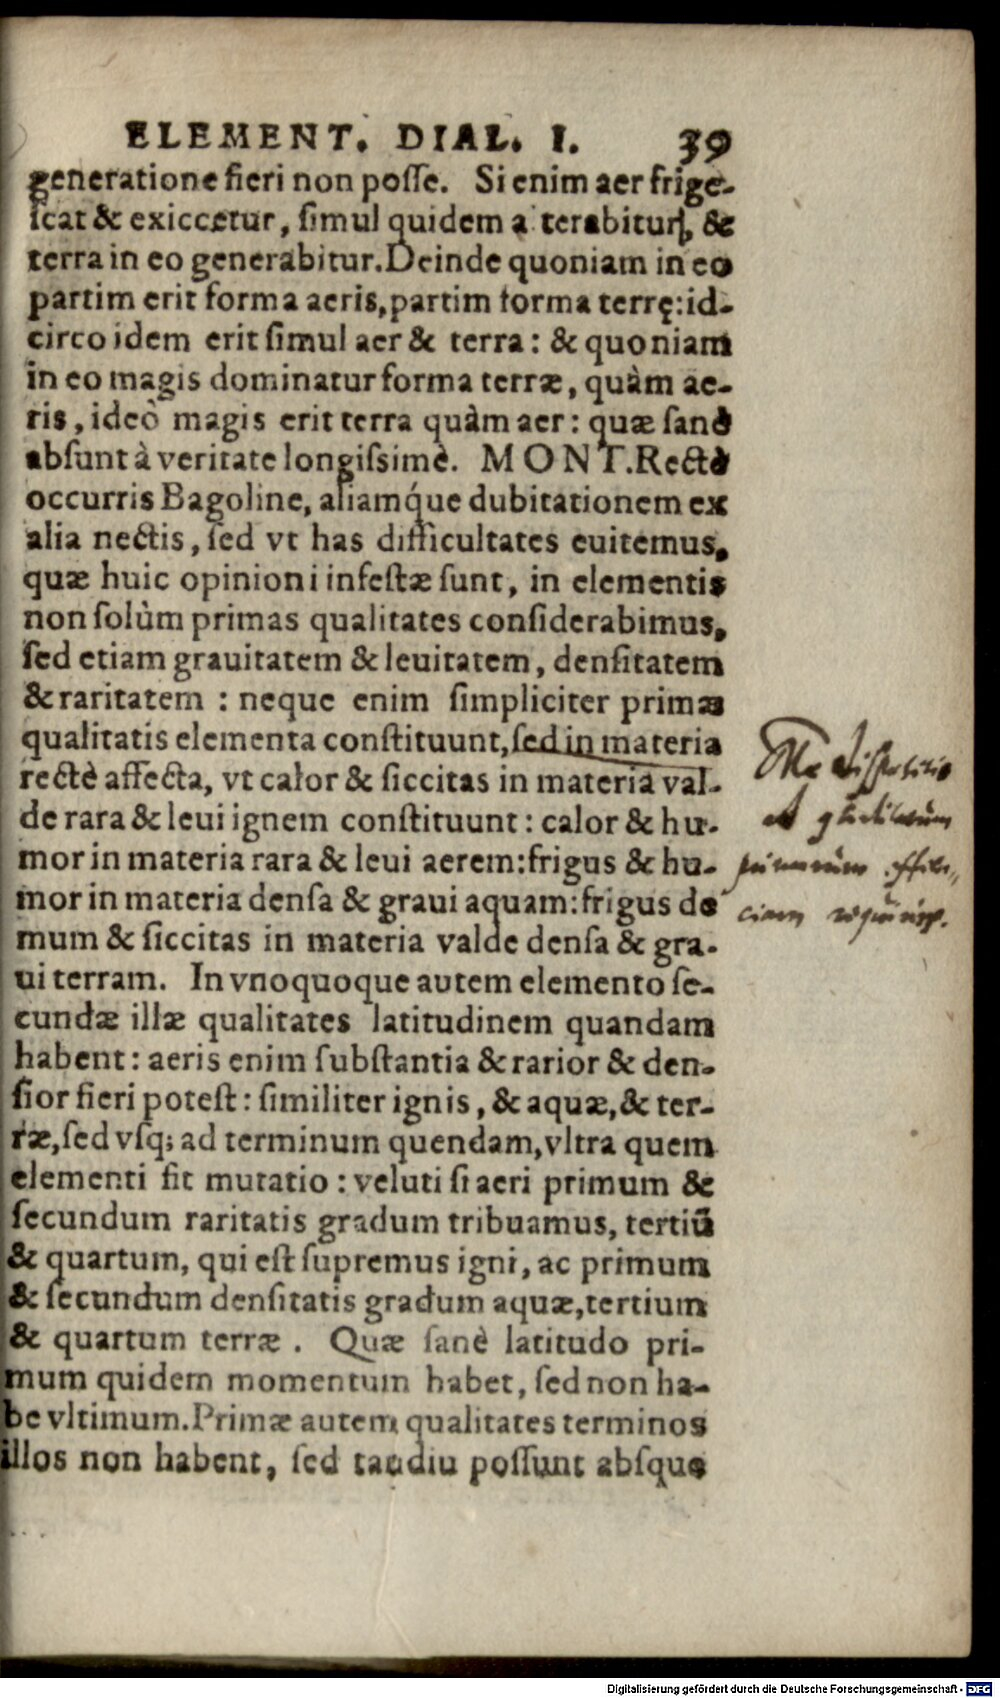 ELEMENT. DIAL. I. 39
generatione fieri non posse. Si enim aer frige-
scat & exiccetur, simul quidem a terabitur, &
terra in eo generabitur. Deinde quoniam in eo
partim erit forma aeris, partim forma terrę: id-
circo idem erit simul aer & terra: & quoniam
in eo magis dominatur forma terræ, quàm ae-
ris, ideò magis erit terra quàm aer: quæ sanè
absunt à veritate longissimè. MONT. Rectè
occurris Bagoline, aliamq́ue dubitationem ex
alia nectis, sed vt has difficultates euitemus,
quæ huic opinioni infestæ sunt, in elementis
non solùm primas qualitates considerabimus,
sed etiam grauitatem & leuitatem, densitatem
& raritatem: neque enim simpliciter primæ
qualitatis elementa constituunt, sed in materia
rectè affecta, vt calor & siccitas in materia val-
de rara & leui ignem constituunt: calor & hu-
mor in materia rara & leui aerem: frigus & hu-
mor in materia densa & graui aquam: frigus de
mum & siccitas in materia valde densa & gra-
ui terram. In vnoquoque autem elemento se-
cundæ illæ qualitates latitudinem quandam
habent: aeris enim substantia & rarior & den-
sior fieri potest: similiter ignis, & aquæ, & ter-
ræ, sed vsq; ad terminum quendam, vltra quem
elementi fit mutatio: veluti si aeri primum &
secundum raritatis gradum tribuamus, tertiũ
& quartum, qui est supremus igni, ac primum
& secundum densitatis gradum aquæ, tertium
& quartum terræ. Quæ sanè latitudo pri-
mum quidem momentum habet, sed non ha-
be vltimum. Primæ autem qualitates terminos
illos non habent, sed tandiu possunt absque
Digitalisierung gefördert durch die Deutsche Forschungsgemeinschaft - DFG